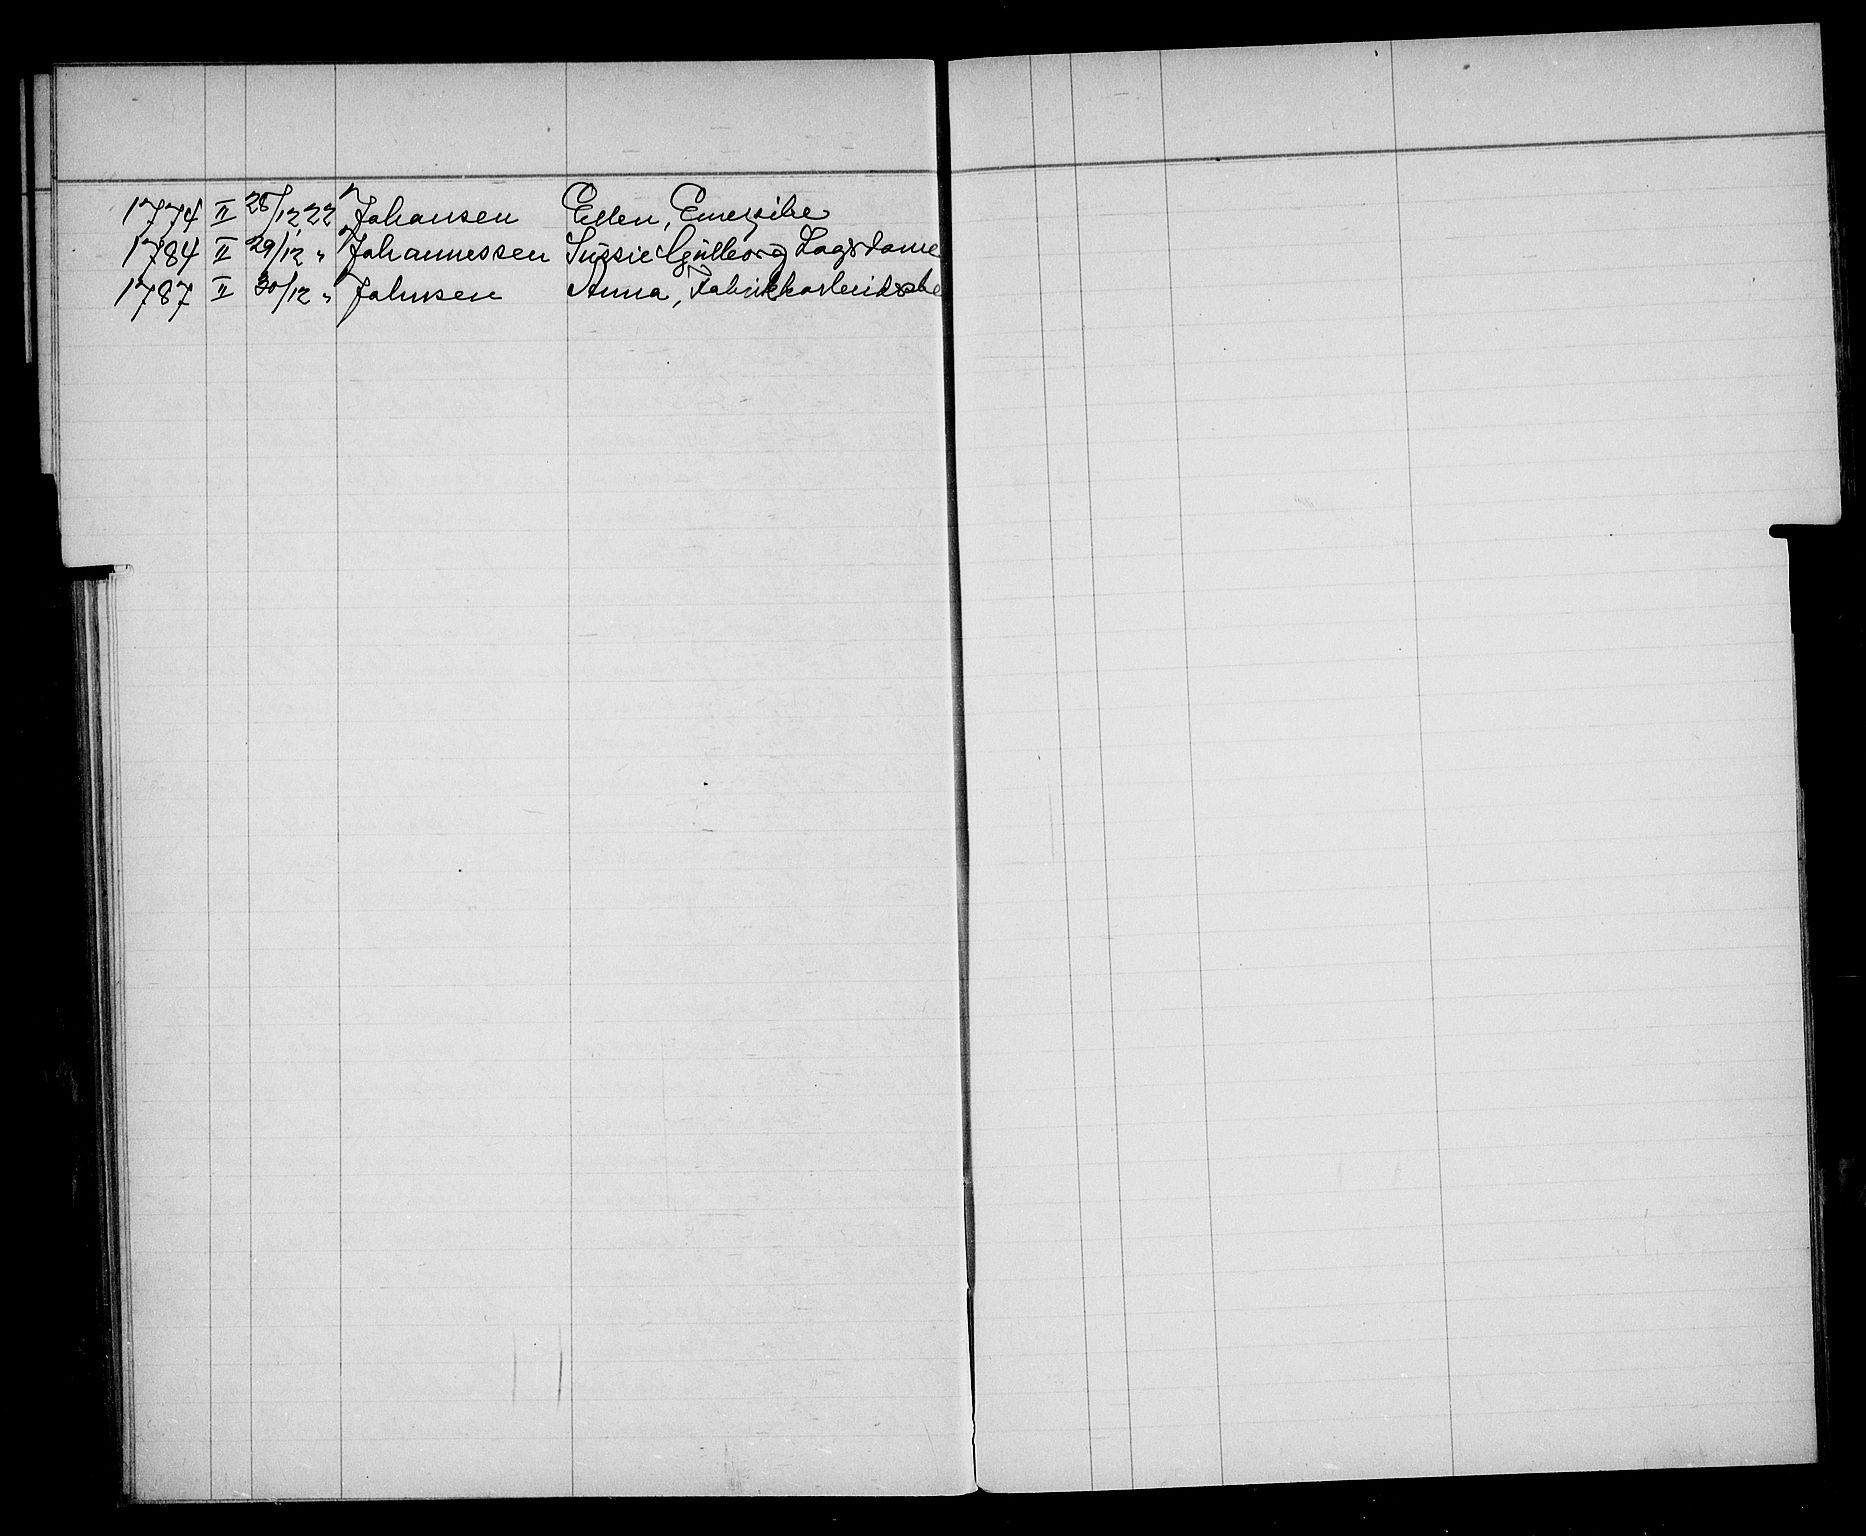 1774 II 28/12 22 Johansen Ellen,
1784 II 29/12 „ Johannessen Sussie Gulborg Lagsdame
1787 II 30/12 „ Johnsen Anna, Fabrikkarbeiderske